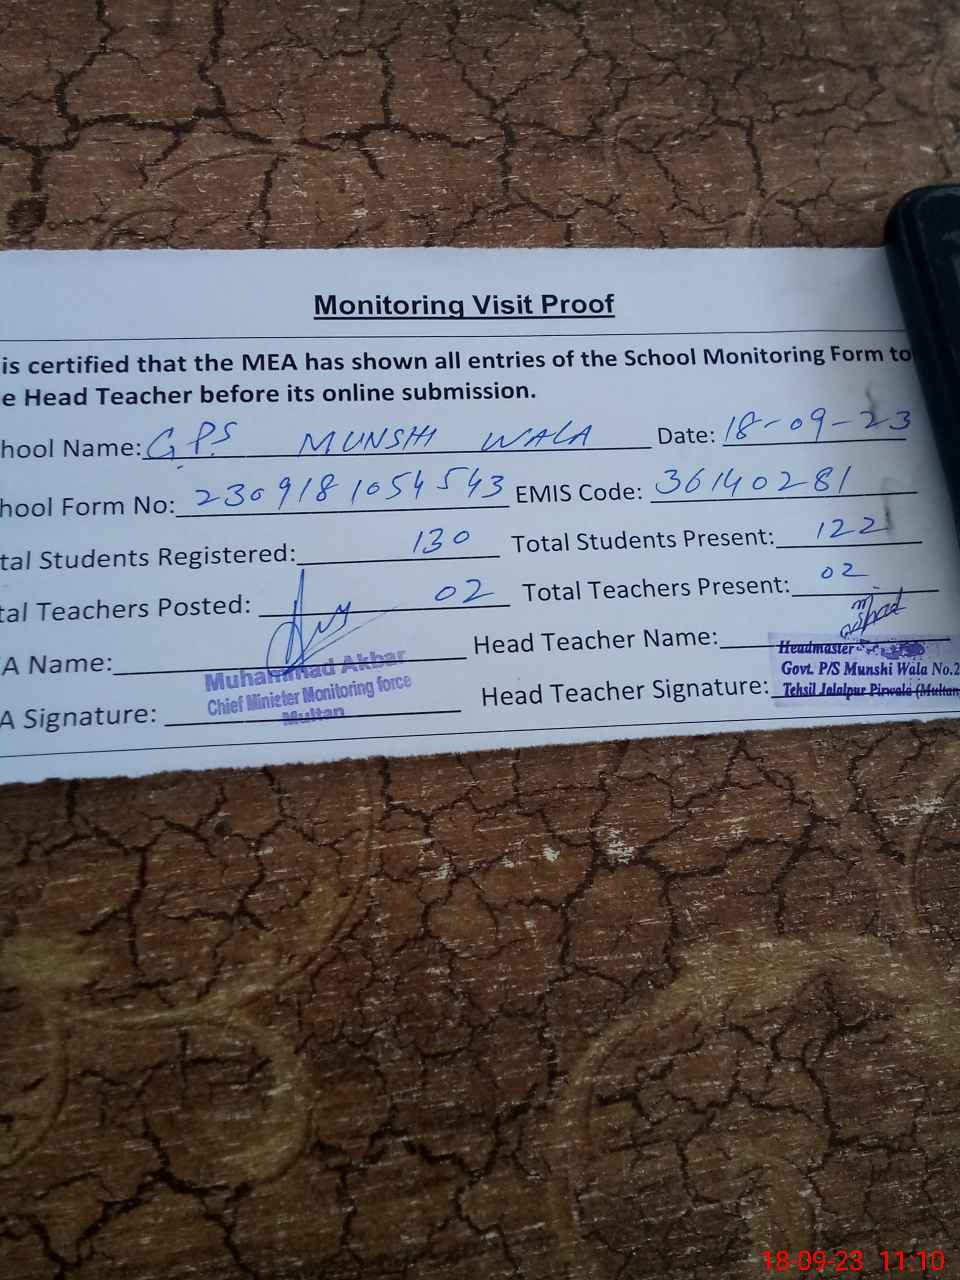 Monitoring Visit Proof
is certified that the MEA has shown all entries of the School Monitoring Form to
e Head Teacher before its online submission.
hool Name: G.P.S MUNSHI WALA Date: 18-09-23
hool Form No: 230918 1054543 EMIS Code: 36140281
tal Students Registered: 130 Total Students Present: 122
tal Teachers Posted: 02 Total Teachers Present: 02
A Name: Head Teacher Name:
Muhammad Akbar
Chief Minister Monitoring force
Multan
Headmaster
Govt. P/S Munshi Wala No.2
Tehsil Jalalpur Pirwala (Multan
A Signature: Head Teacher Signature:
18-09-23 11:10